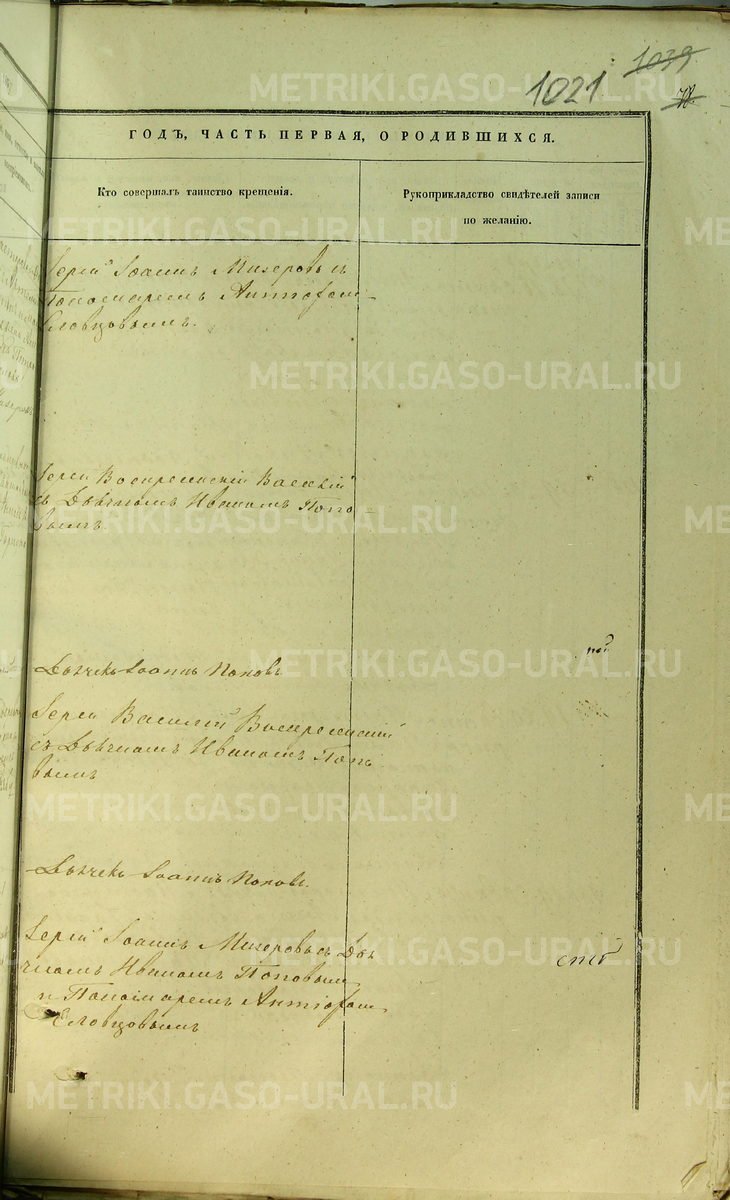 1039
1021
ГОДЪ, ЧАСТЬ ПЕРВАЯ, О РОДИВШИХСЯ.
Кто совершалъ таинство крещенія.
Рукоприкладство свидѣтелей записи
по желанію.
Іерей Іоаннъ Мизеровъ съ
Пономаремъ
Словцовымъ.
Іерей Воскресенскій Василій
съ Дьячкомъ Иваномъ Попо-
вымъ
Дьячекъ Іоаннъ Поповъ
Іерей Василій Воскресенскій
съ Дьячкомъ Иваномъ Попо
вымъ
Дьячекъ Іоаннъ Поповъ.
Іерей Іоаннъ Мизеровъ съ Дья
чкомъ Иваномъ Поповым
и Пономаремъ
METRIKI.GASO-URAL.RU